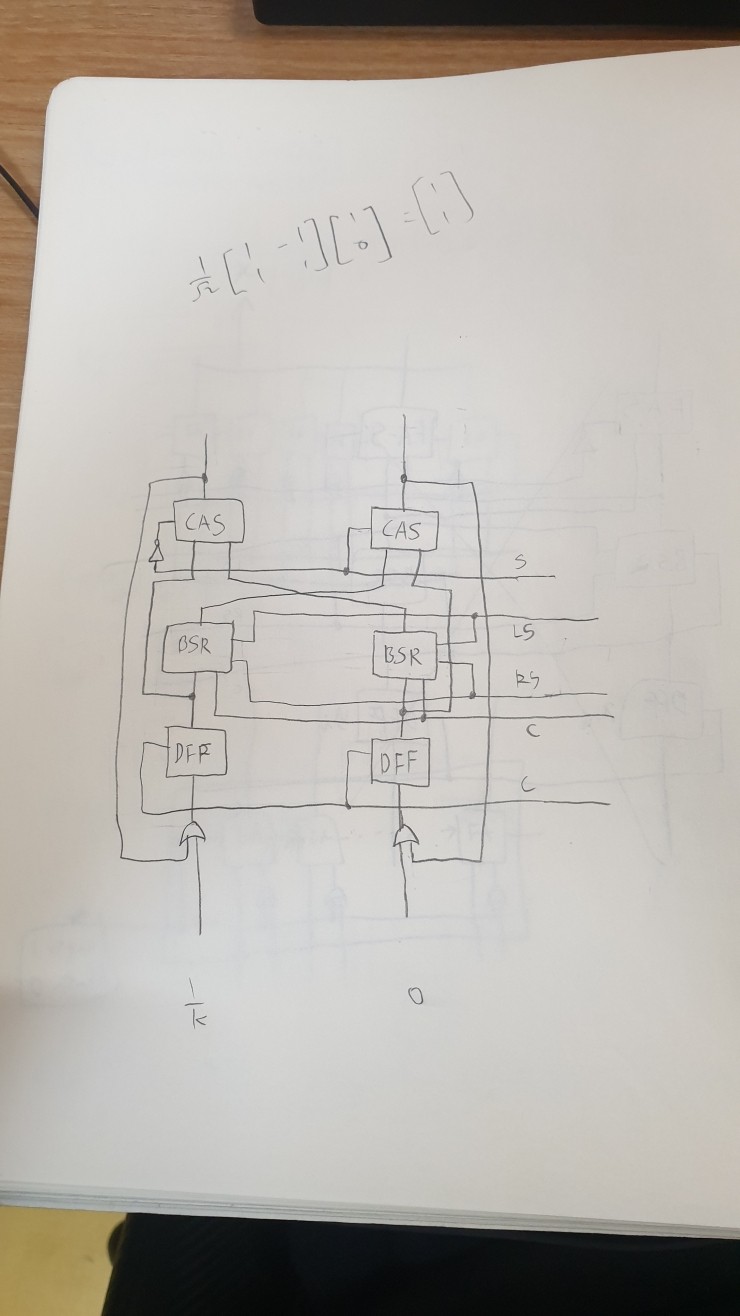 1/√2 [1 1 1 -1] [1 0] = [1 1]
CAS
CAS
S
LS
BSR
BSR
RS
C
DFF
DFF
C
1/K
0